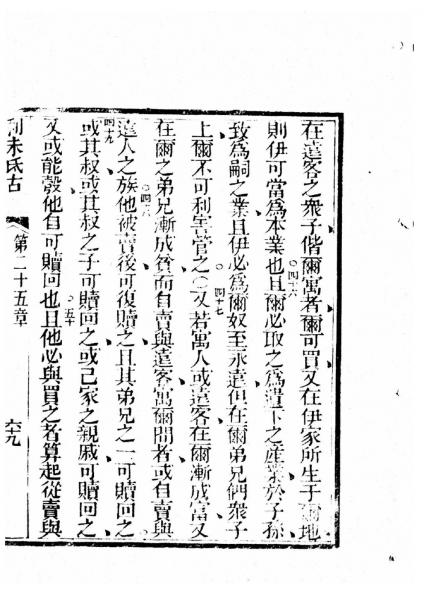 在遠客之衆子偕爾寓者爾可買又在伊家所生于爾地
則伊可當爲本業也○四十六且爾必取之爲遺下之產業於子孫
致爲嗣之業且伊必爲爾奴至永遠但在爾弟兄們衆子
上爾不可利害管之○○四十七又若寓人或遠客在爾漸成富又
在爾之弟兄漸成貧而自賣與遠客寓爾間者或自賣與
遠人之族○四十八他被賣後可復贖之且其弟兄之一可贖回之
四十九或其叔或其叔之子可贖回之或己家之親戚可贖回之
又或能彀他自可贖回也○五十且他必與買之者算起從賣與
利未氏古
第二十五章
六九